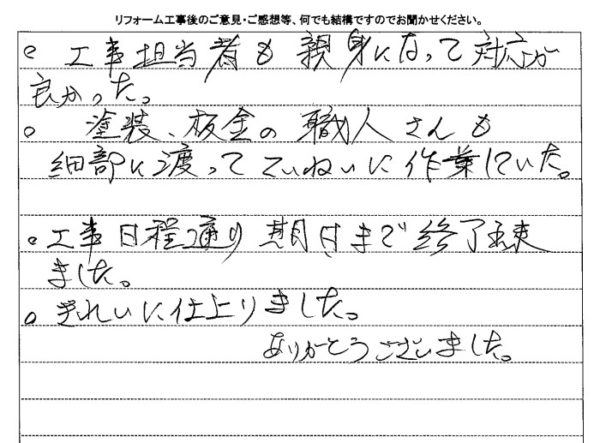 リフォーム工事後のご意見・ご感想等、何でも結構ですのでお聞かせください。
○ 工事担当者も親身になって対応が
良かった。
○ 塗装、板金の職人さんも
細部に渡ってていねいに作業していた。
○工事日程通り期日まで終了出来
ました。
○きれいに仕上りました。
ありがとうございました。